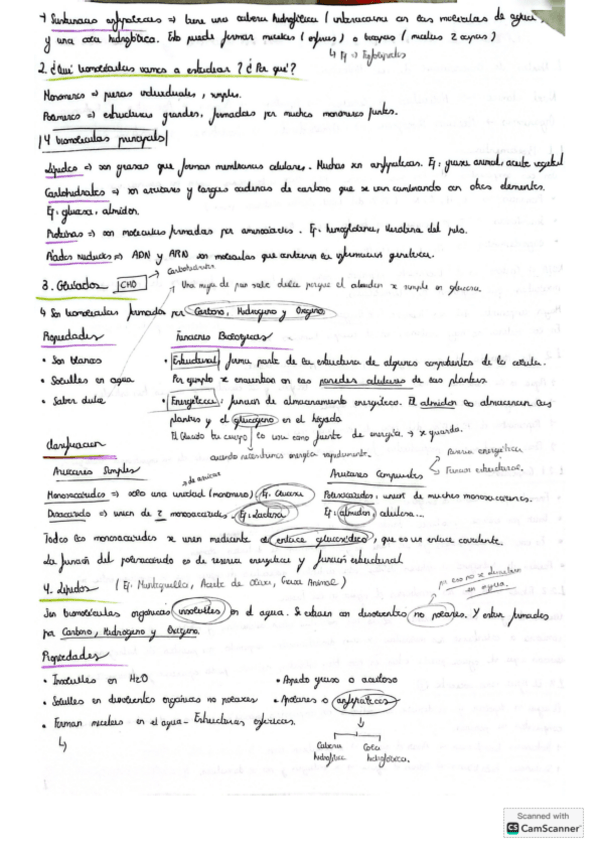 Sustancias anfipáticas => tiene una cabeza hidrofílica (interacciona con las moléculas de agua)
y una cola hidrofóbica. Esto puede formar micelas (esferas) o bicapas (micelas 2 capas)
↳ Ej => Fosfolípidos
2. ¿Qué biomoléculas vamos a estudiar? ¿Por qué?
Monómeros => piezas individuales, simples.
Polímeros => estructuras grandes, formadas por muchos monómeros juntos.
4 biomoléculas principales
Lípidos => son grasas que forman membranas celulares. Muchas son anfipáticas. Ej: grasa animal, aceite vegetal
Carbohidratos => son azúcares y largas cadenas de carbono que se van combinando con otros elementos.
Ej: glucosa, almidón.
Proteínas => son moléculas formadas por aminoácidos. Ej: hemoglobina, keratina del pelo.
Ácidos nucleicos => ADN y ARN son moléculas que contienen la información genética.
3. Glúcidos CHO → Carbohidratos
Una miga de pan sabe dulce porque el almidón x simple en glucosa.
↳ Son biomoléculas formadas por Carbono, Hidrógeno y Oxígeno
Propiedades Funciones Biológicas
• Son blancos • Estructural, forma parte de la estructura de algunos componentes de la célula.
• Solubles en agua Por ejemplo x encuentran en las paredes celulares de las plantas.
• Sabor dulce • Energética: función de almacenamiento energético. El almidón lo almacenan las
plantas y el glucógeno en el hígado
El Glúcido tu cuerpo lo usa como fuente de energía → x guarda.
cuando necesitamos energía rápidamente.
Clasificación
Azúcares Simples Azúcares Compuestos
Función energética
Función estructural.
de azúcar
Monosacáridos => solo una unidad (monómero) Ej. Glucosa Polisacáridos: unión de muchos monosacáridos.
Disacárido => unión de 2 monosacáridos. Ej: Lactosa Ej: almidón, celulosa...
Todos los monosacáridos x unen mediante el enlace glucosídico, que es un enlace covalente.
La función del polisacárido es de reserva energética y función estructural
4. Lípidos (Ej: Mantequilla, Aceite de Oliva, Grasa Animal)
por eso no x disuelven en agua.
Son biomoléculas orgánicas insolubles en el agua. Si en disolventes no polares. Y están formados
por Carbono, Hidrógeno y Oxígeno.
Propiedades
• Insolubles en H2O • Aspecto graso o aceitoso
• Solubles en disolventes orgánicos no polares • Apolares o anfipáticos
• Forman micelas en el agua - Estructuras esféricas.
↳
Cabeza hidrofílica Cola hidrofóbica.
Scanned with
CS CamScanner